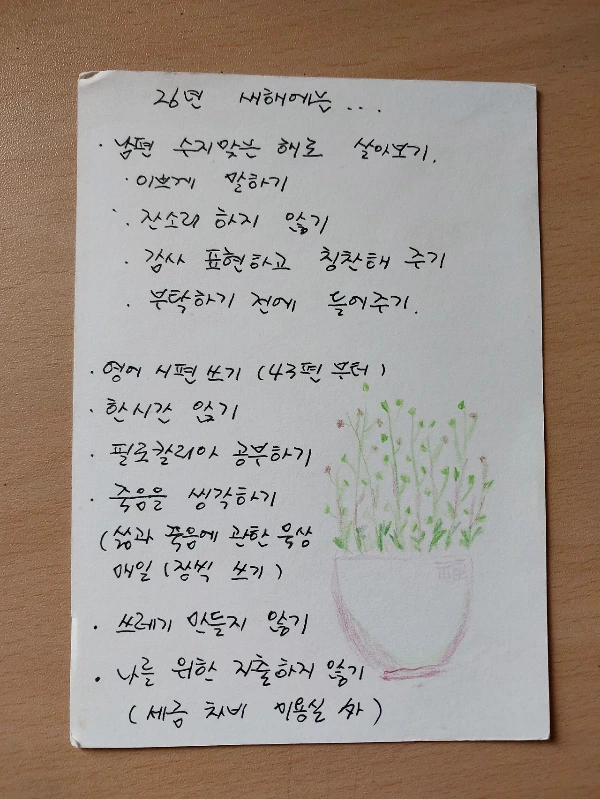 26년 새해에는 ...
· 남편 수지맞는 해로 살아보기.
· 이쁘게 말하기
· 잔소리 하지 않기
· 감사 표현하고 칭찬해 주기
· 부탁하기 전에 들어주기.
· 영어 시편 쓰기 (43편 부터)
· 한시간 앉기
· 필로칼리아 공부하기
· 죽음을 생각하기
(삶과 죽음에 관한 묵상
매일 1장씩 쓰기)
· 쓰레기 만들지 않기
· 나를 위한 지출하지 않기
(세금 차비 미용실 外)
福